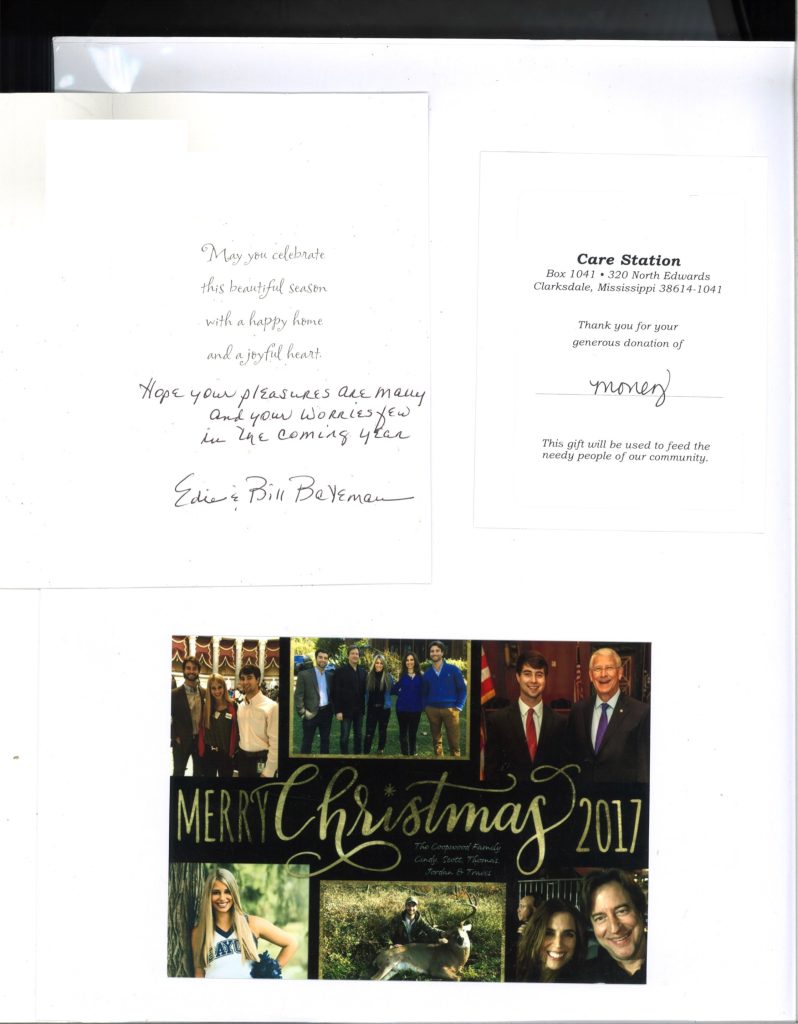 May you celebrate
this beautiful season
with a happy home
and a joyful heart.
Hope your pleasures are many
and your worries few
in the coming year
Edie & Bill Bateman
Care Station
Box 1041 • 320 North Edwards
Clarksdale, Mississippi 38614-1041
Thank you for your
generous donation of
money
This gift will be used to feed the
needy people of our community.
MERRY Christmas 2017
The Coopwood Family
Cindy, Scott, Thomas,
Jordan & Travis